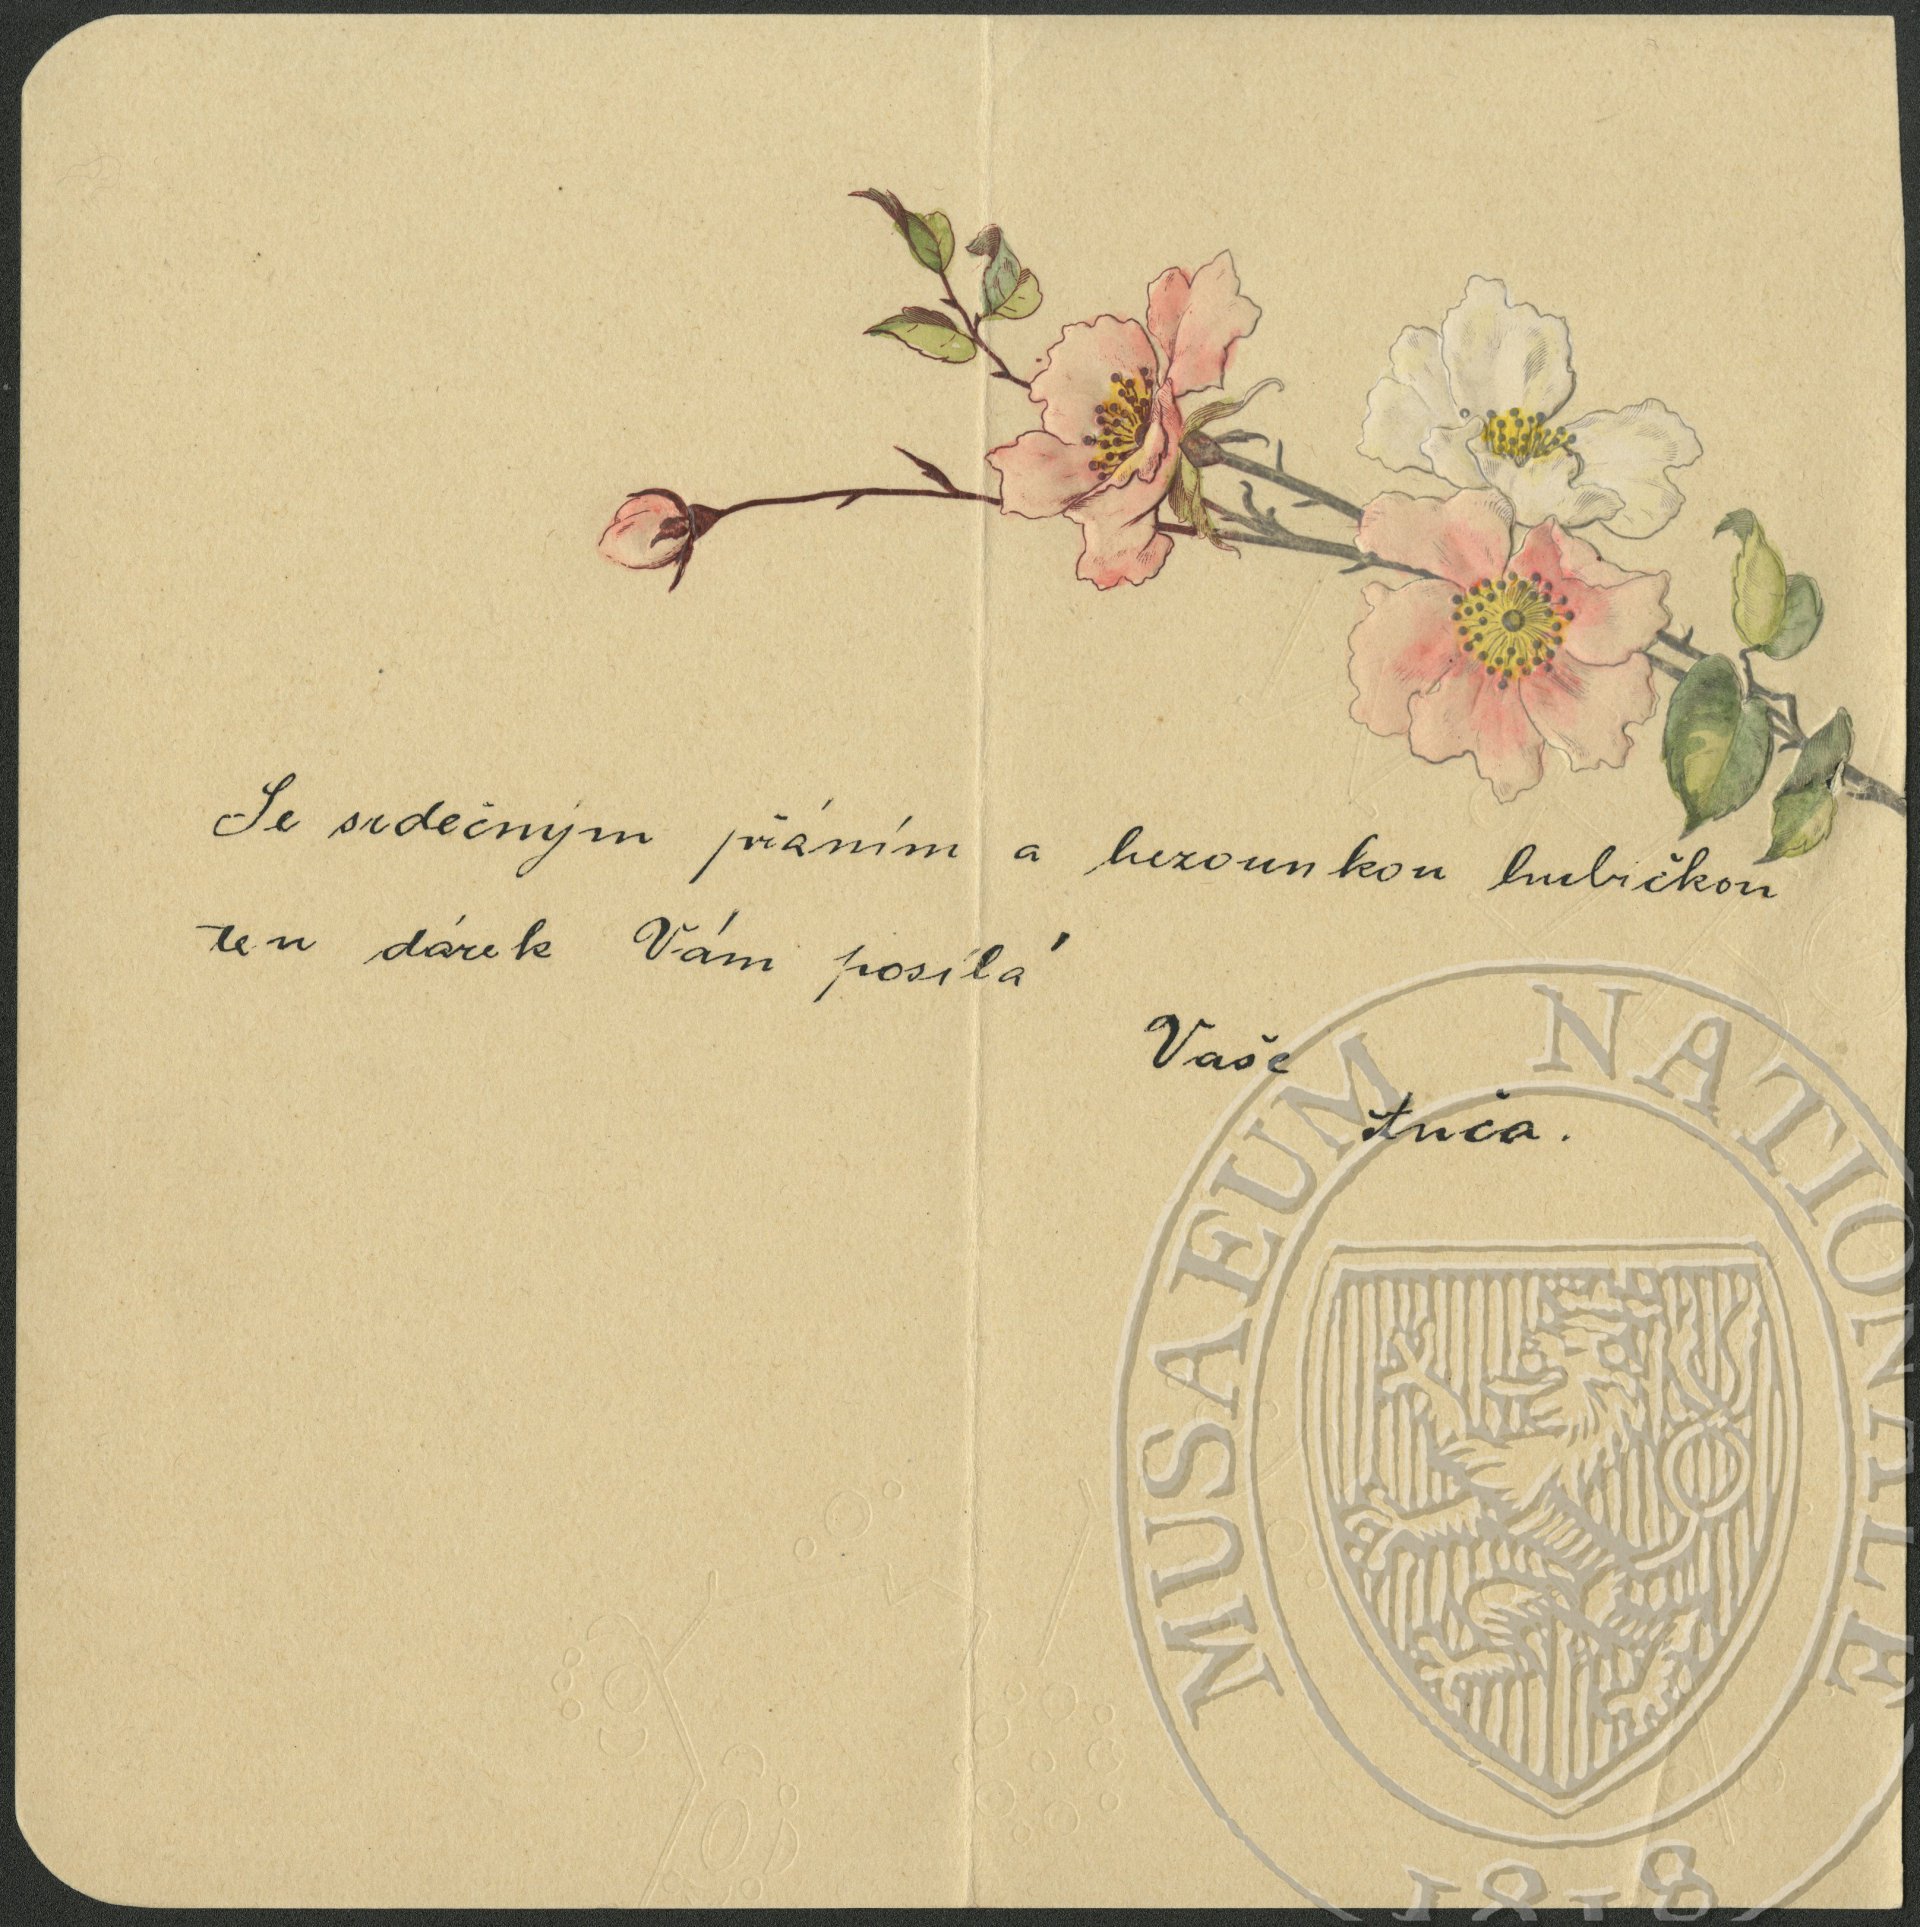 Se srdečným přáním a hezounkou hubičkou
ten dárek Vám posílá
Vaše
Anča.
MUSAEUM NATIONALE
1818